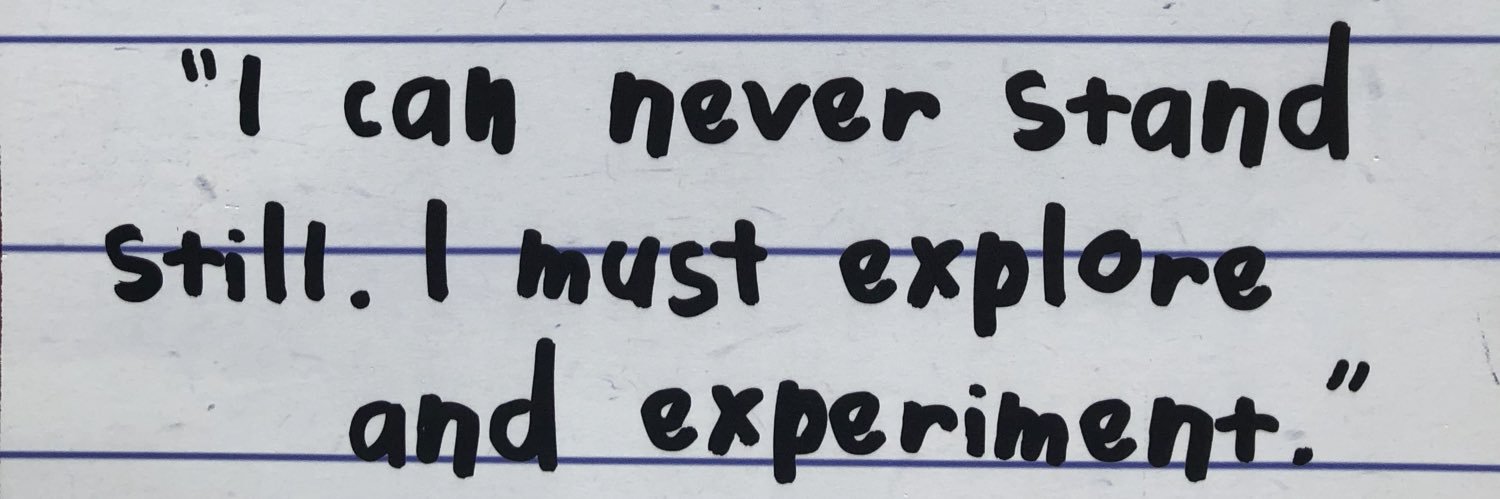 "I can never stand
still. I must explore
and experiment."